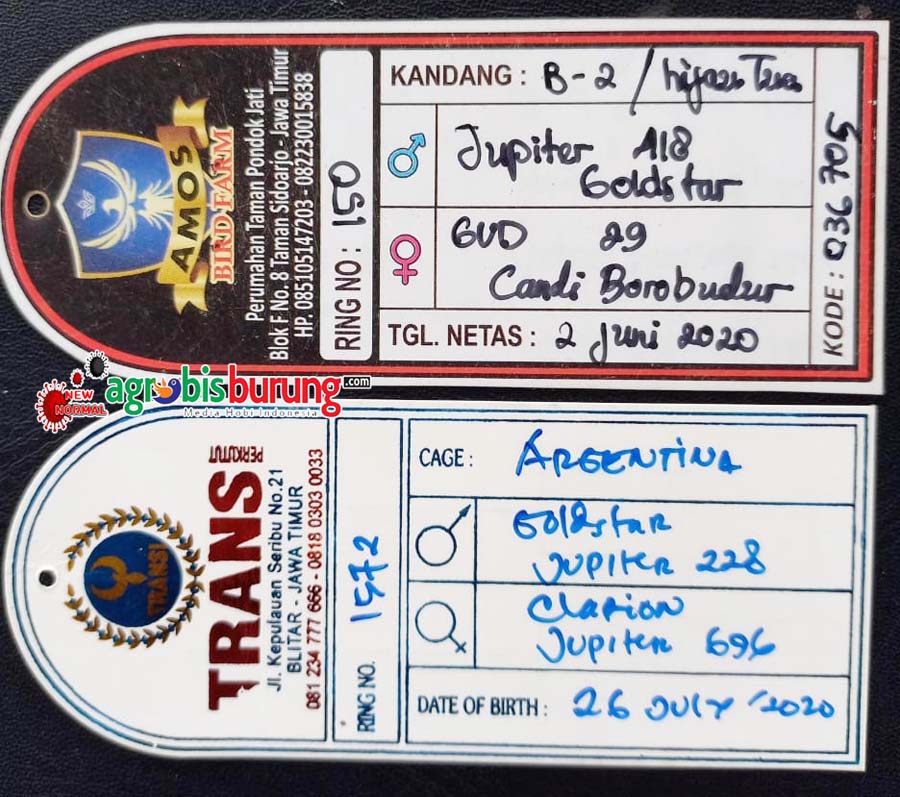 AMOS
BIRD FARM
Perumahan Taman Pondok Jati
Blok F No. 8 Taman Sidoarjo - Jawa Timur
HP. 085105147203 - 082230015838
RING NO : 150
KANDANG : B-2 / hijau Tua
Jupiter A18
Goldstar
GUD 29
Candi Borobudur
TGL. NETAS : 2 Juni 2020
KODE : 036 705
NEW NORMAL
agrobisburung.com
Media Hobi Indonesia
TRANSI
TRANS
PERKUTUT
Jl. Kepulauan Seribu No.21
BLITAR - JAWA TIMUR
081 234 777 666 - 0818 0303 0033
RING NO. 1572
CAGE : ARGENTINA
Goldstar
Jupiter 228
Clarion
Jupiter 696
DATE OF BIRTH : 26 JULY / 2020